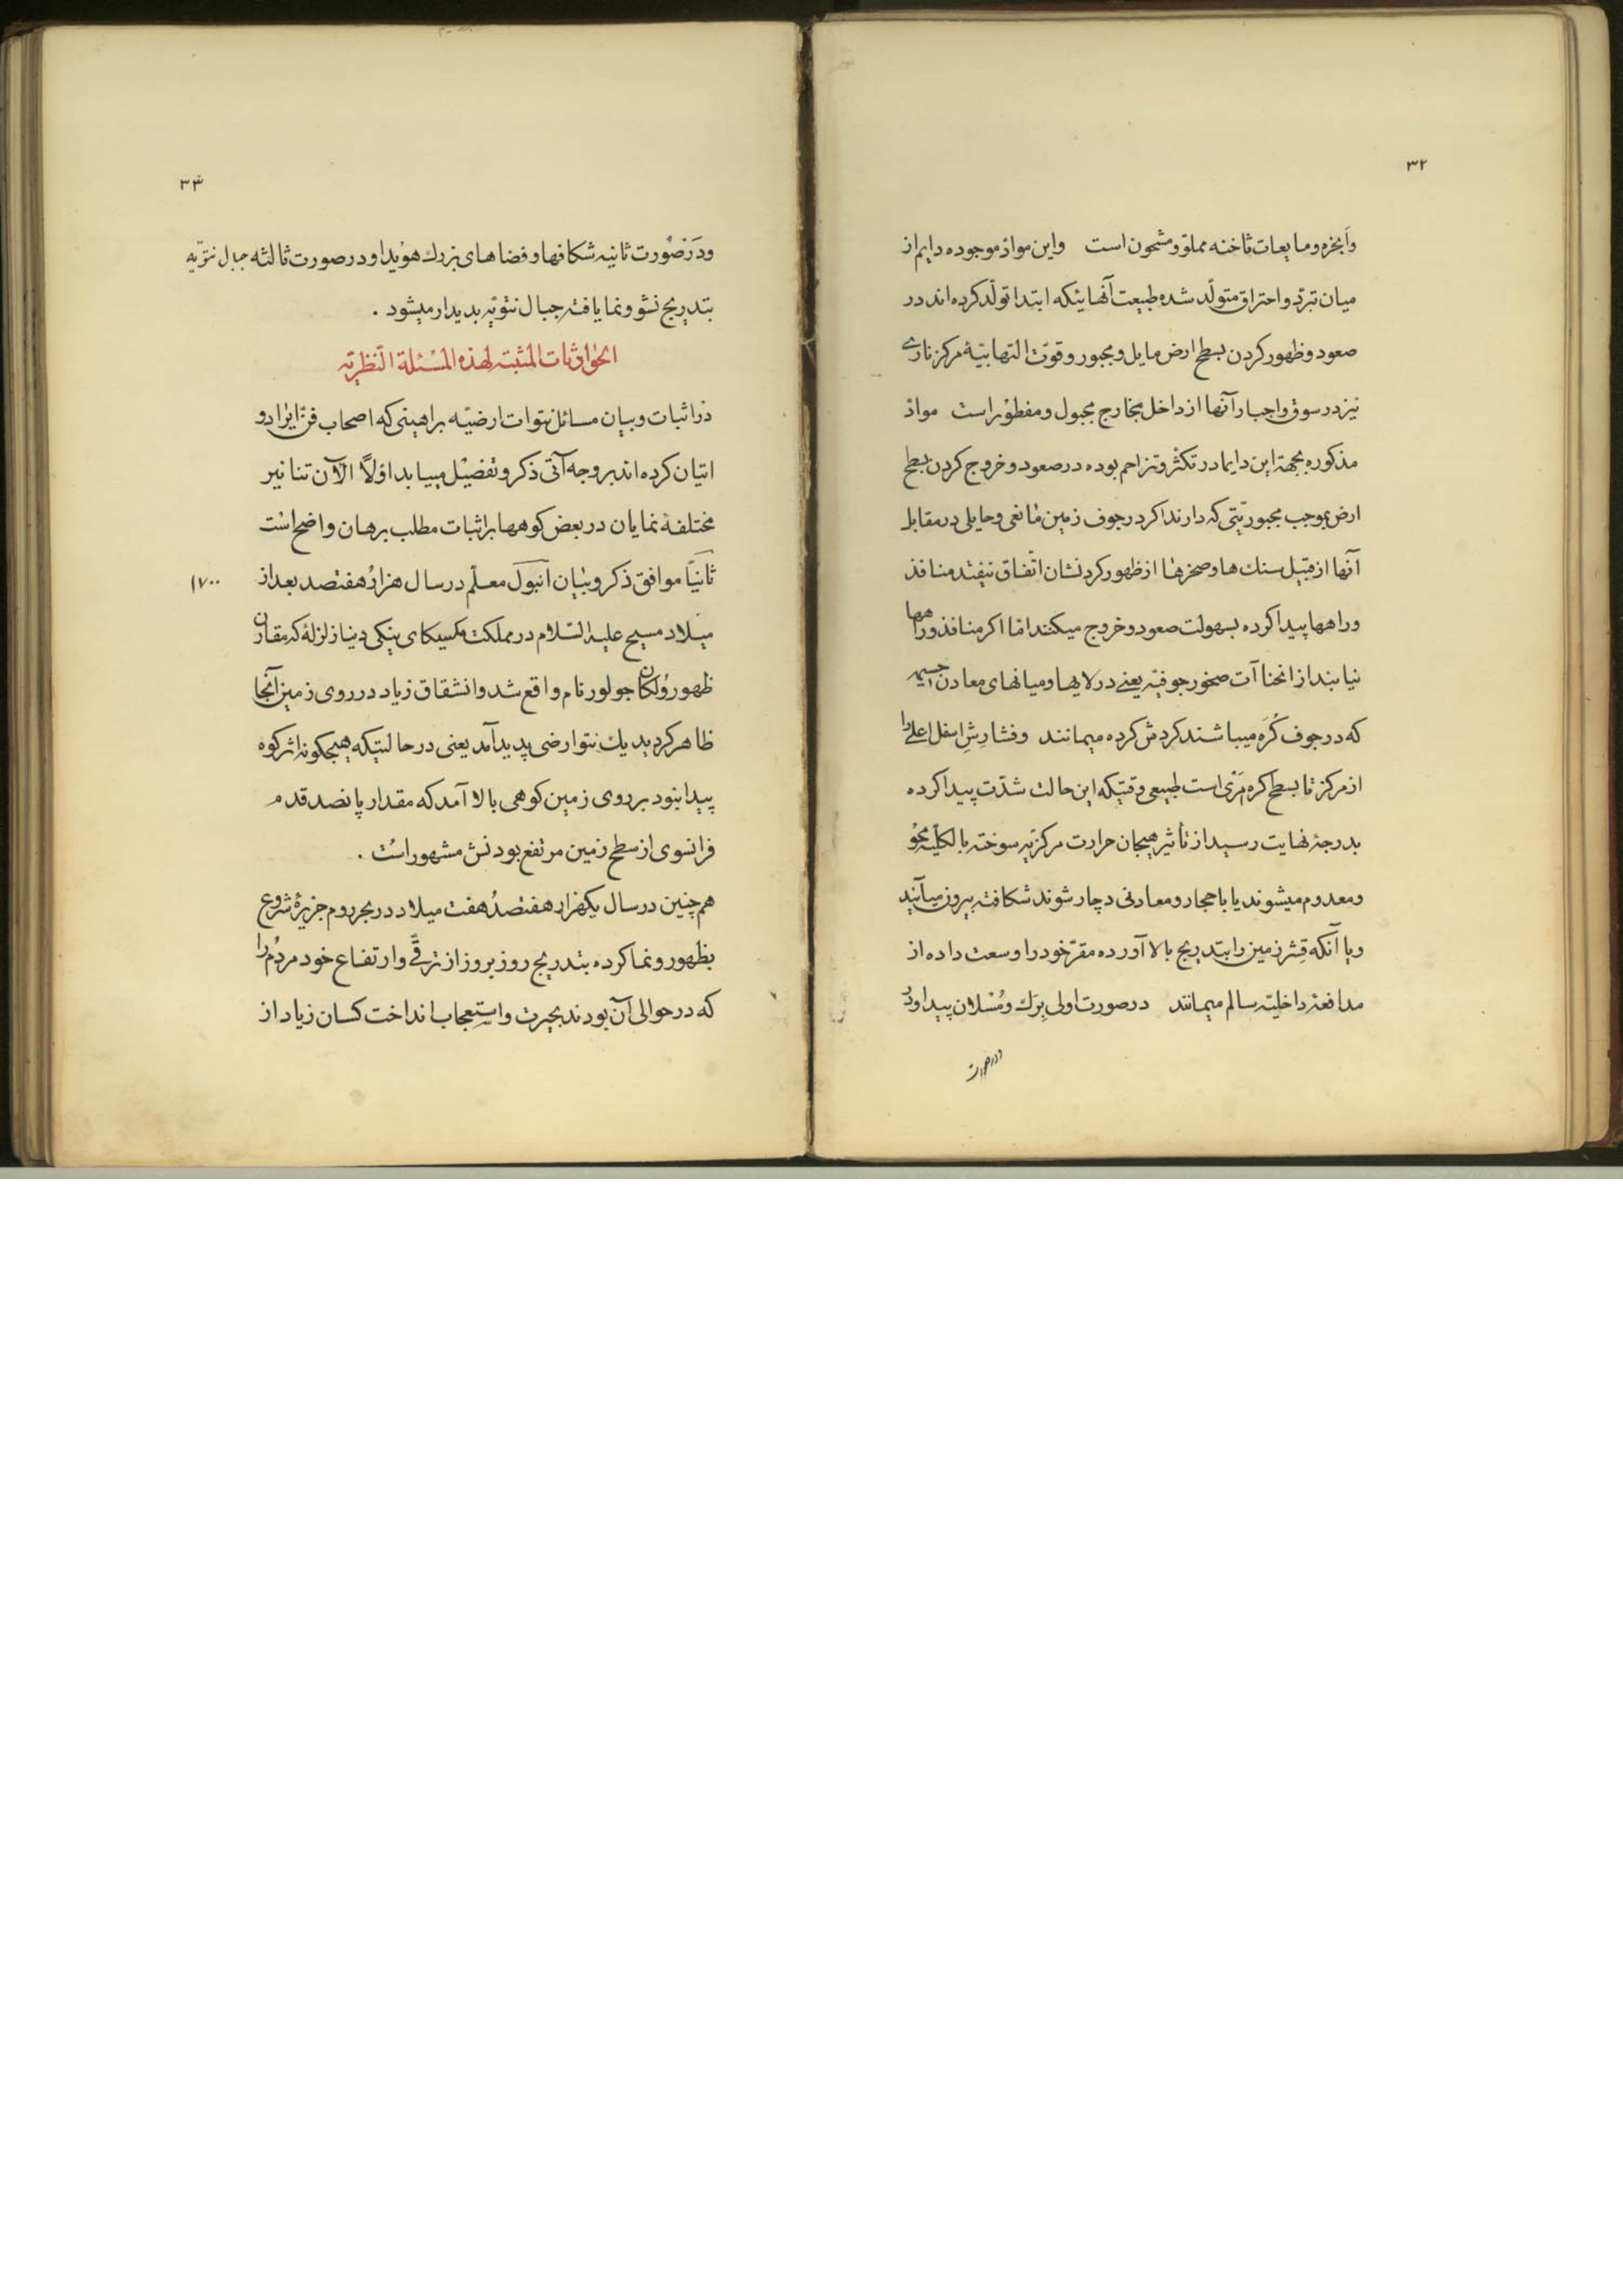 ۳۲
وأبخره ومایعات ثاخنه مملوّ ومشحون است واین موادّ موجوده دایم از
میان تبرّد واحتراق متولّد شده طبیعت آنهائیکه ابتدا تولّد کرده اند در
صعود وظهور کردن بسطح ارض مایل ومجبور وقوّت التهابیّهٔ مرکز ناری
نیز در سوق واجبار آنها از داخل بخارج مجبول ومفطور است موادّ
مذکوره بجهة این دایما در تکثّر وتزاحم بوده در صعود وخروج کردن بسطح
ارض بموجب مجبوریّتی که دارند اکر در جوف زمین مانعی وحایلی در مقابل
آنها از قبیل سنك ها وصخرها از ظهور کردنشان اتّفاق نیفتد منافذ
وراهها پیدا کرده بسهولت صعود وخروج میکنند امّا اکر منافذ وراهها
نیابند از انحناآت صخور جوفیّه یعنی در لایها ومیانهای معادن جسیمه
که در جوف کُره میباشند کردش کرده میمانند وفشارِش اسفل اعلی را
از مرکز تا بسطح کره امری است طبیعی وقتیکه این حالت شدّت پیدا کرده
بدرجهٔ نهایت رسید از تأثیر هیجان حرارت مرکزیّه سوخته بالکلّیه محو
ومعدوم میشوند یا باحجار ومعادنی دچار شوند شکافته بیرون میآیند
ویا آنکه قِشر زمین را بتدریج بالا آورده مقرّ خود را وسعت داده از
مدافعهٔ داخلیّه سالم میمانند در صورت اولی بِرَك ومُسْلان پیدا ودر
در صورت
۳۳
ودر صُورت ثانیه شکافها وفضاهای بزرك هویدا ودر صورت ثالثه جبال نتوّیه
بتدریج نشو ونما یافته جبال نتوّیه بدیدار میشود .
الحوادثات المثبته لهذه المسْئلة النّظریّه
در اثبات وبیان مسائل نتوات ارضیّه براهینی که اصحاب فنّ ایراد و
اتیان کرده اند بر وجه آتی ذکر وتفضیْل مییابد اوّلاً الآن تنانیر
مختلفهٔ نمایان در بعض کوهها بر اثبات مطلب برهان واضح است
ثانیًا موافق ذکر وبیان انبوَل معلّم در سال هزار هفتصد بعد از ۱۷۰۰
میلاد مسیح علیه السّلام در مملکت مکسیکای ینکی دنیا زلزلهٔ که مقارن
ظهور وُلکان جولور نام واقع شد وانشقاق زیاد در روی زمین آنجا
ظاهر کردید یك نتوا رضی پدید آمد یعنی در حالتیکه هیچکونه اثر کوه
پیدا نبود بر روی زمین کوهی بالا آمد که مقدار پانصد قدم
فرانسوی از سطح زمین مرتفع بودنش مشهور است .
هم چنین در سال یکهزار هفتصدُ هفت میلاد در بحر روم جزیرهٔ شروع
بظهور ونما کرده بتدریج روز بروز از ترقّی وارتفاع خود مردُم را
که در حوالی آن بودند بحیرت واستعجاب انداخت کسان زیاد از